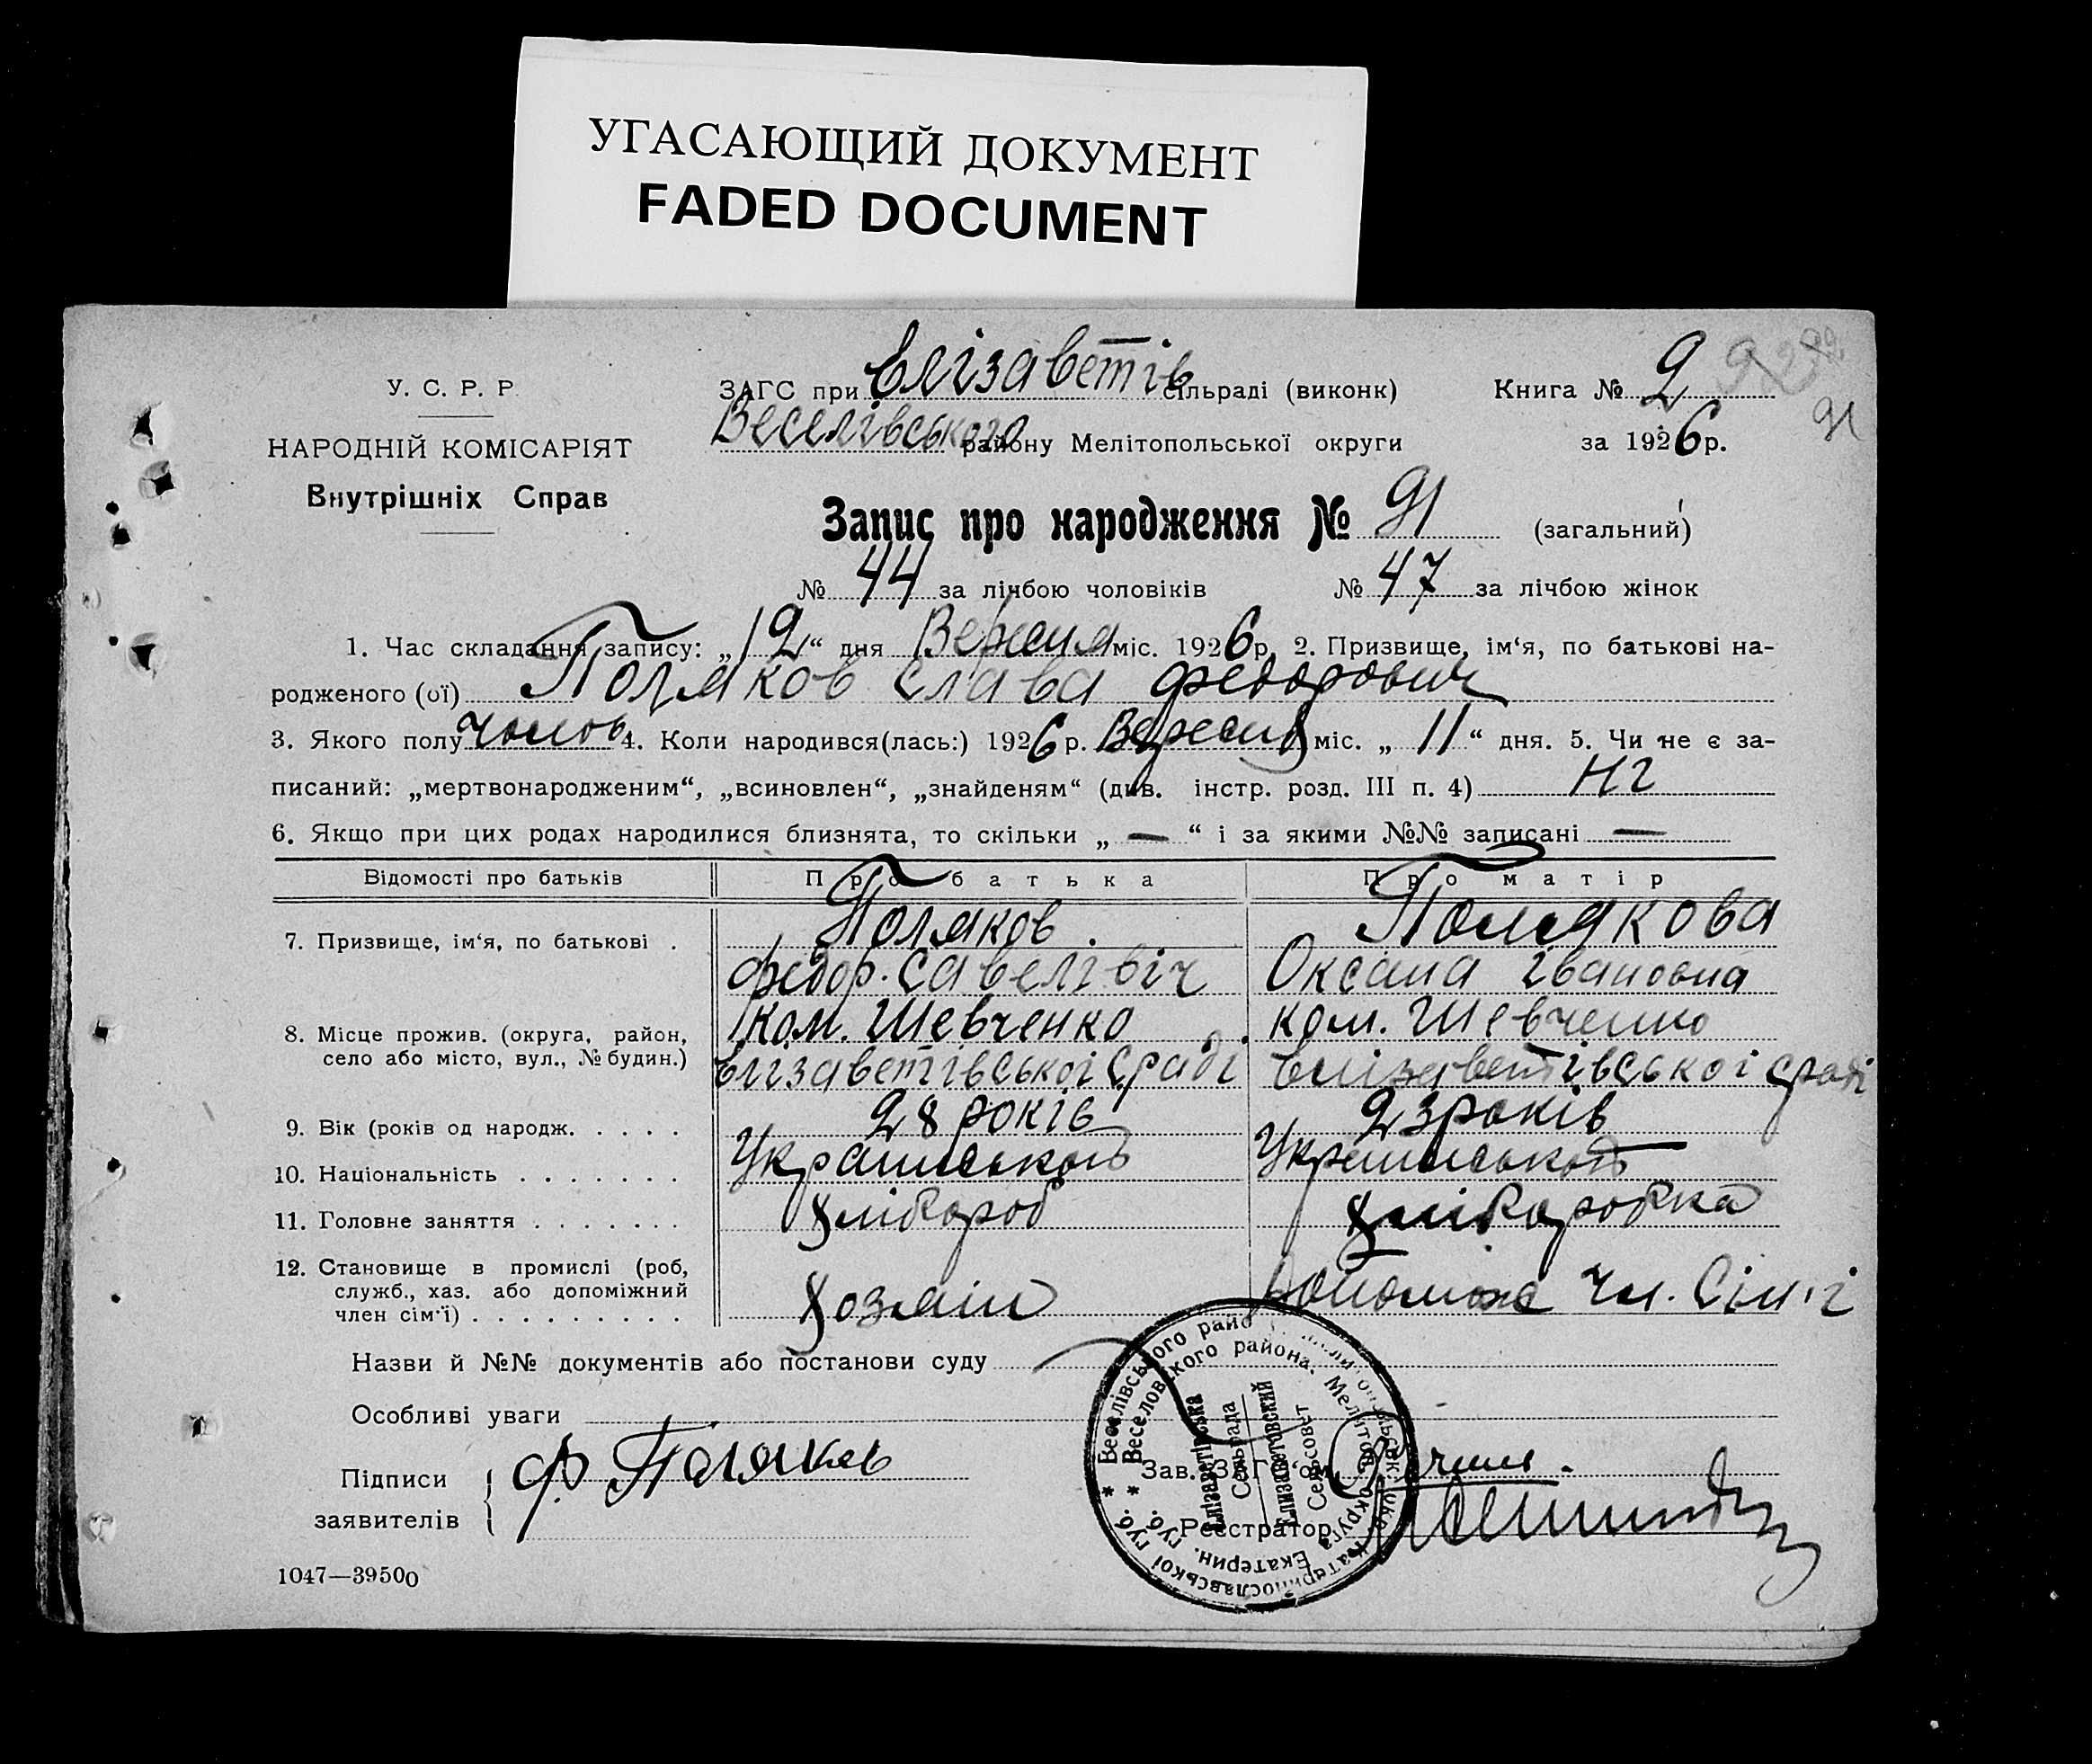 УГАСАЮЩИЙ ДОКУМЕНТ
FADED DOCUMENT
У. С. Р. Р.
НАРОДНІЙ КОМІСАРІЯТ
Внутрішніх Справ
ЗАГС при Єлізаветів сільраді (виконк)
Веселівського району Мелітопольської округи
Книга № 2
за 1926 р.
91
Запис про народження № 91 (загальний)
№ 44 за лічбою чоловіків № 47 за лічбою жінок
1. Час складання запису: „12“ дня Вересня міс. 1926 р. 2. Призвище, ім‘я, по батькові на-
родженого (ої) Поляков Слава Федорович
3. Якого полу чолов. 4. Коли народився(лась:) 1926 р. Вересня міс. „11“ дня. 5. Чи не є за-
писаний: „мертвонародженим“, „всиновлен“, „знайденям“ (див. інстр. розд. III п. 4) Ні
6. Якщо при цих родах народилися близнята, то скільки „—“ і за якими №№ записані —
Відомості про батьків Про батька Про матір
7. Призвище, ім‘я, по батькові . Поляков. Полякова
Федор. Савелівіч Оксана Івановна
8. Місце прожив. (округа, район, ком. Шевченко ком. Шевченко
село або місто, вул., № будин.) Єлізаветівської Сраді Єлізаветівської сраді
9. Вік (років од народж. . . . . 28 років 23 років
10. Національність . . . . . . . Українського Українського
11. Головне заняття . . . . . . . Хлібороб Хлібороб­ка
12. Становище в промислі (роб,
служб., хаз. або допоміжний
член сім‘ї) . . . . . . . . . Хозяїн допомож чл. Сім'ї
Назви й №№ документів або постанови суду
Особливі уваги
Підписи
заявителів
Ф. Поляков
Зав. ЗАГС‘ом
Реєстратор
Єлізаветівська
Сельрада
Елизаветовский
Сельсовет
1047—39500